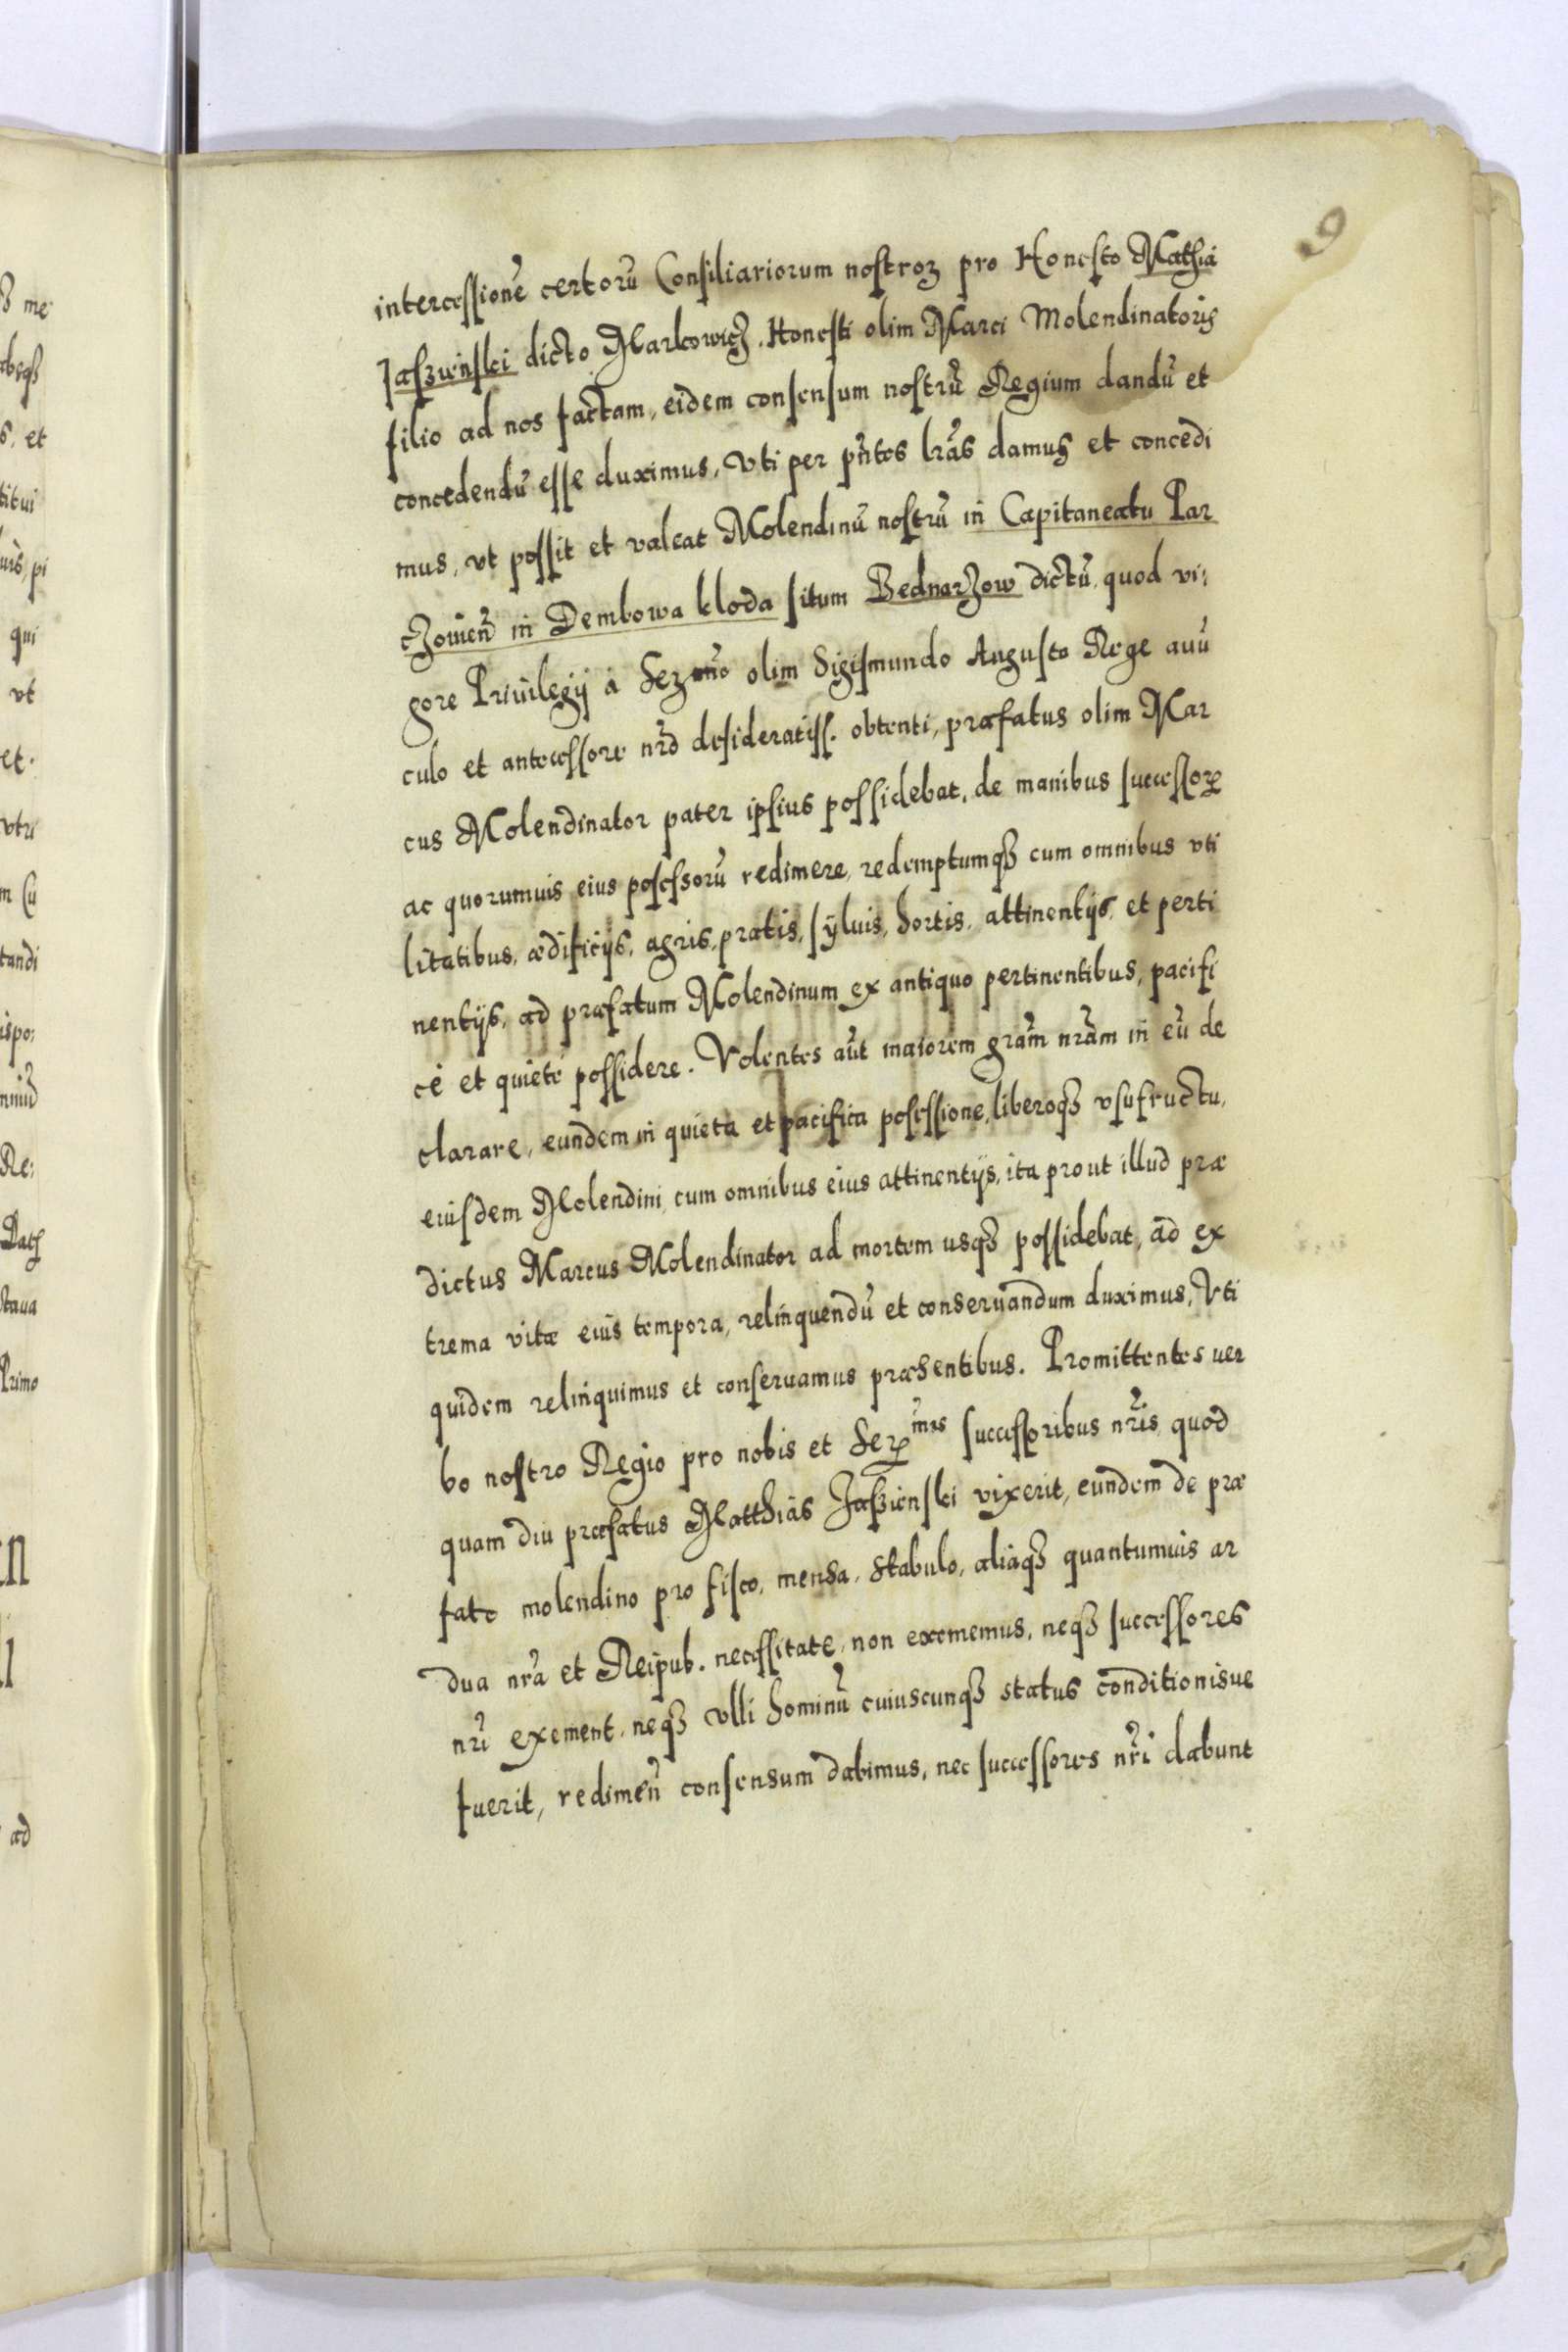 9
intercessionē certorū Consiliariorum nostroꝝ pro Honesto Mathia
Jaszienski dicto Markowicz, Honesti olim Marci Molendinatoris
filio ad nos factam, eidem consensum nostrū Regium dandū et
concedendū esse duximus, Vti per pñtes lrãs damus et concedi
mus, vt possit et valeat Molendinū nostrū in Capitaneatu Par
czouieñ in Dembowa kloda situm Bednarzow dictū, quod vi:
gore Priuilegij à Serēno olim Sigismundo Augusto Rege auū
culo et antecessore nrõ desideratiss. obtenti, præfatus olim Mar
cus Molendinator pater ipsius possidebat, de manibus successoꝝ
ac quorumuis eius posessorū redimere, redemptumqꝫ cum omnibus vti
litatibus, ædificijs, agris, pratis, syluis, hortis, attinentijs, et perti
nentijs, ad præfatum Molendinum ex antiquo pertinentibus, pacifi
cè et quietè possidere. Volentes aũt maiorem grãm nrãm in eū de
clarare, eundem in quieta et pacifica posessione, liberoqꝫ vsufructu,
eiusdem Molendini cum omnibus eius attinentijs, ita prout illud præ
dictus Marcus Molendinator ad mortem usqꝫ possidebat, ad ex
trema vitæ eius tempora, relinquendū et conseruandum duximus, Vti
quidem relinquimus et conseruamus præsentibus. Promittentes uer
bo nostro Regio pro nobis et Serᵐⁱˢ successoribus nr̃is, quod
quam diu præfatus Matthias Jaszienski vixerit, eundem de præ
fato molendino pro fisco, mensa, stabulo, aliaqꝫ quantumuis ar
dua nrã et Reipub. necessitate, non eximemus, neqꝫ successores
nr̃i exement, neqꝫ vlli hominū cuiuscunqꝫ status conditionisue
fuerit, redimeñ consensum dabimus, nec successores nr̃i dabunt